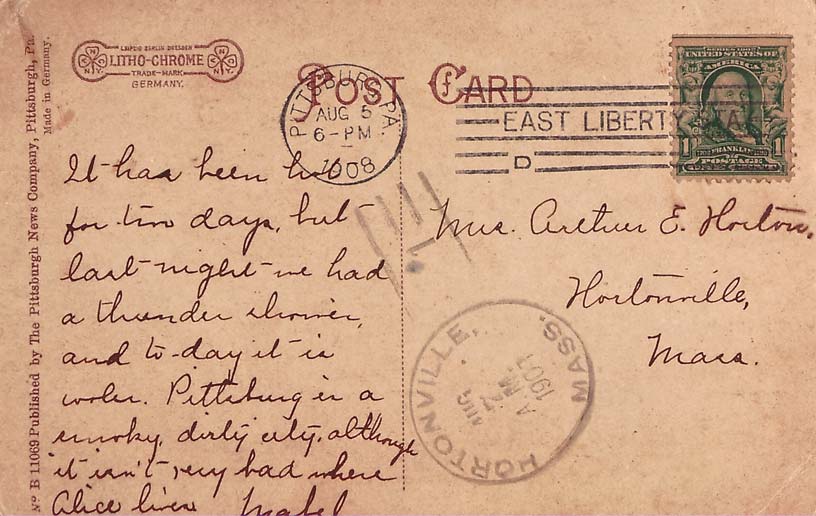 LEIPZIG BERLIN DRESDEN
LITHO-CHROME
TRADE-MARK
GERMANY.
POST CARD
PITTSBURG, PA.
AUG 5
6-PM
1908
EAST LIBERTY STA.
D
SERIES 1902
UNITED STATES OF
AMERICA
FRANKLIN
1 POSTAGE 1
ONE CENT
It has been hot
for two days, but
last night we had
a thunder shower,
and to-day it is
cooler. Pittsburg is a
smoky, dirty city, although
it isn't very bad where
Alice lives Mabel
Mrs. Arthur E. Horton,
Hortonville,
Mass.
HORTONVILLE, MASS.
AUG
7
A.M.
No. B 11069 Published by The Pittsburgh News Company, Pittsburgh, Pa.
Made in Germany.